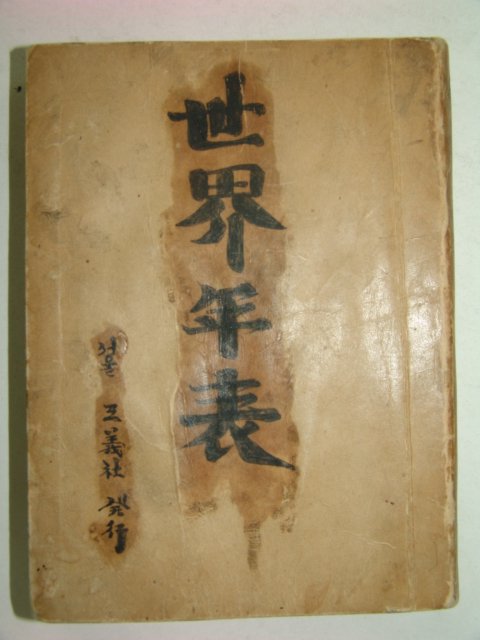 世界年表
서울 三義社 發行